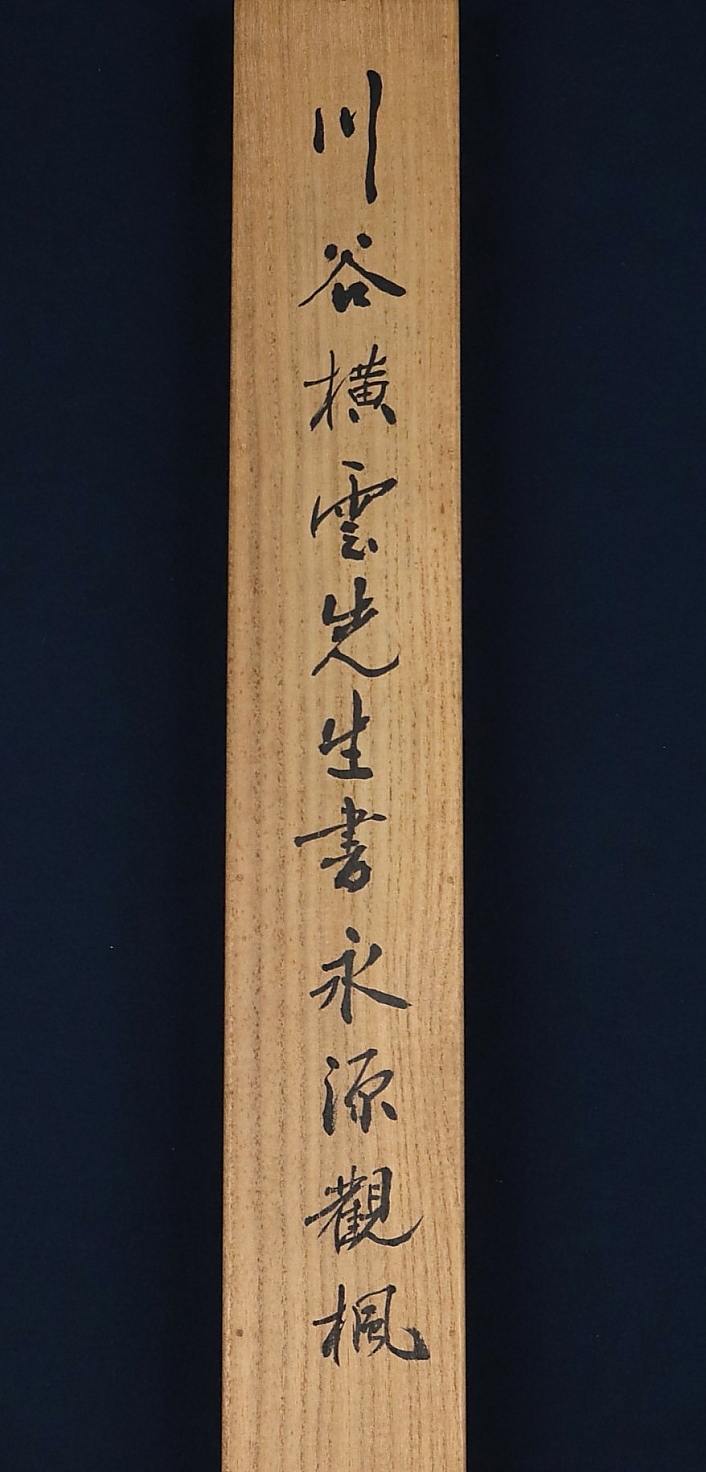 川谷横雲先生書永源觀楓